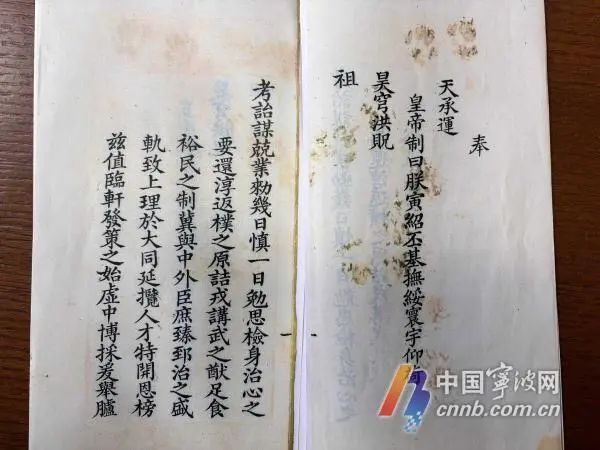 奉
天承運
皇帝制曰朕寅紹丕基撫綏寰宇仰
昊穹洪貺
祖
考詒謀兢業勑幾日慎一日勉思檢身治心之
要還淳返樸之原詰戎講武之猷足食
裕民之制冀與中外臣庶臻郅治之盛
軌致上理於大同延攬人才特開恩榜
兹值臨軒發策之始虛中博採爰舉臚
中国寧波网
cnnb.com.cn